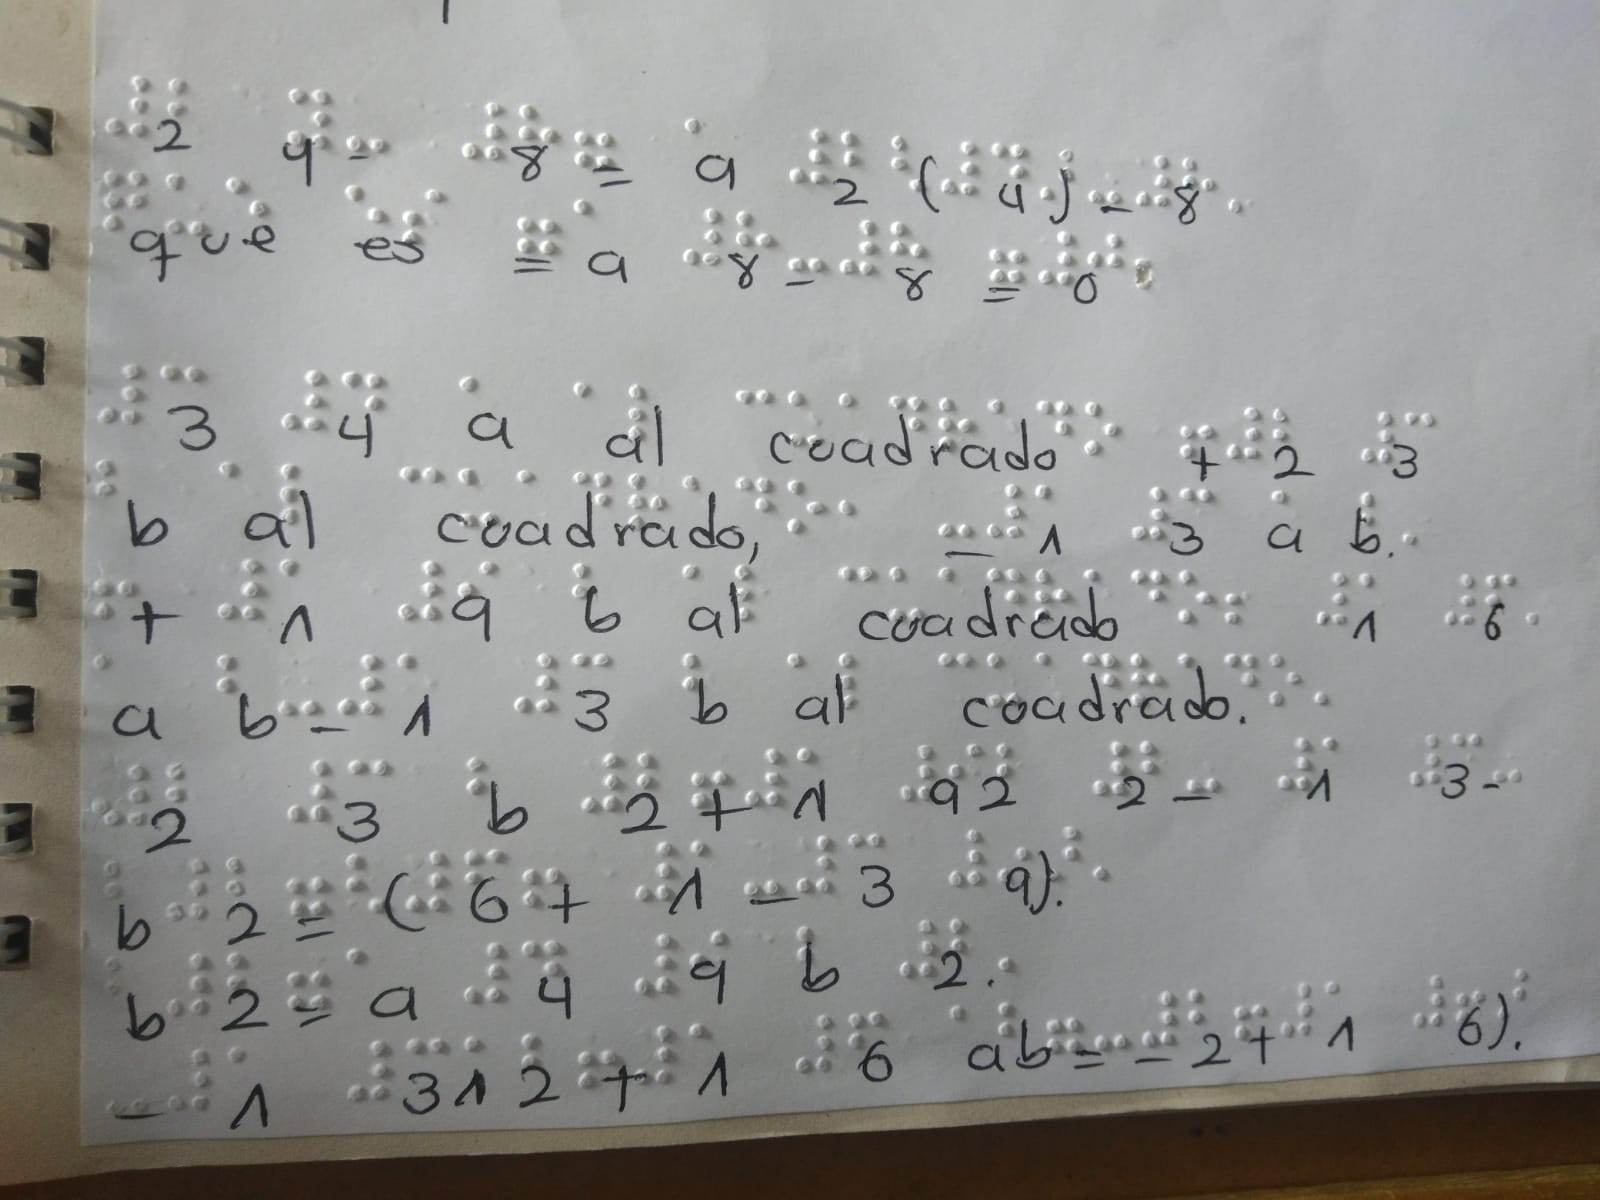 2 4 - 8 = a 2 (4) - 8.
que es = a 8 - 8 = 0
3 4 a al cuadrado + 2 3
b al cuadrado, - 1 3 a b.
+ 1 9 b al cuadrado 1 6
a b - 1 3 b al cuadrado.
2 3 b 2 + 1 92 2 - 1 3 -
b 2 = (6 + 1 - 3 9).
b 2 = a 4 9 b 2.
- 1 312 + 1 6 ab = - 2 + 1 6).